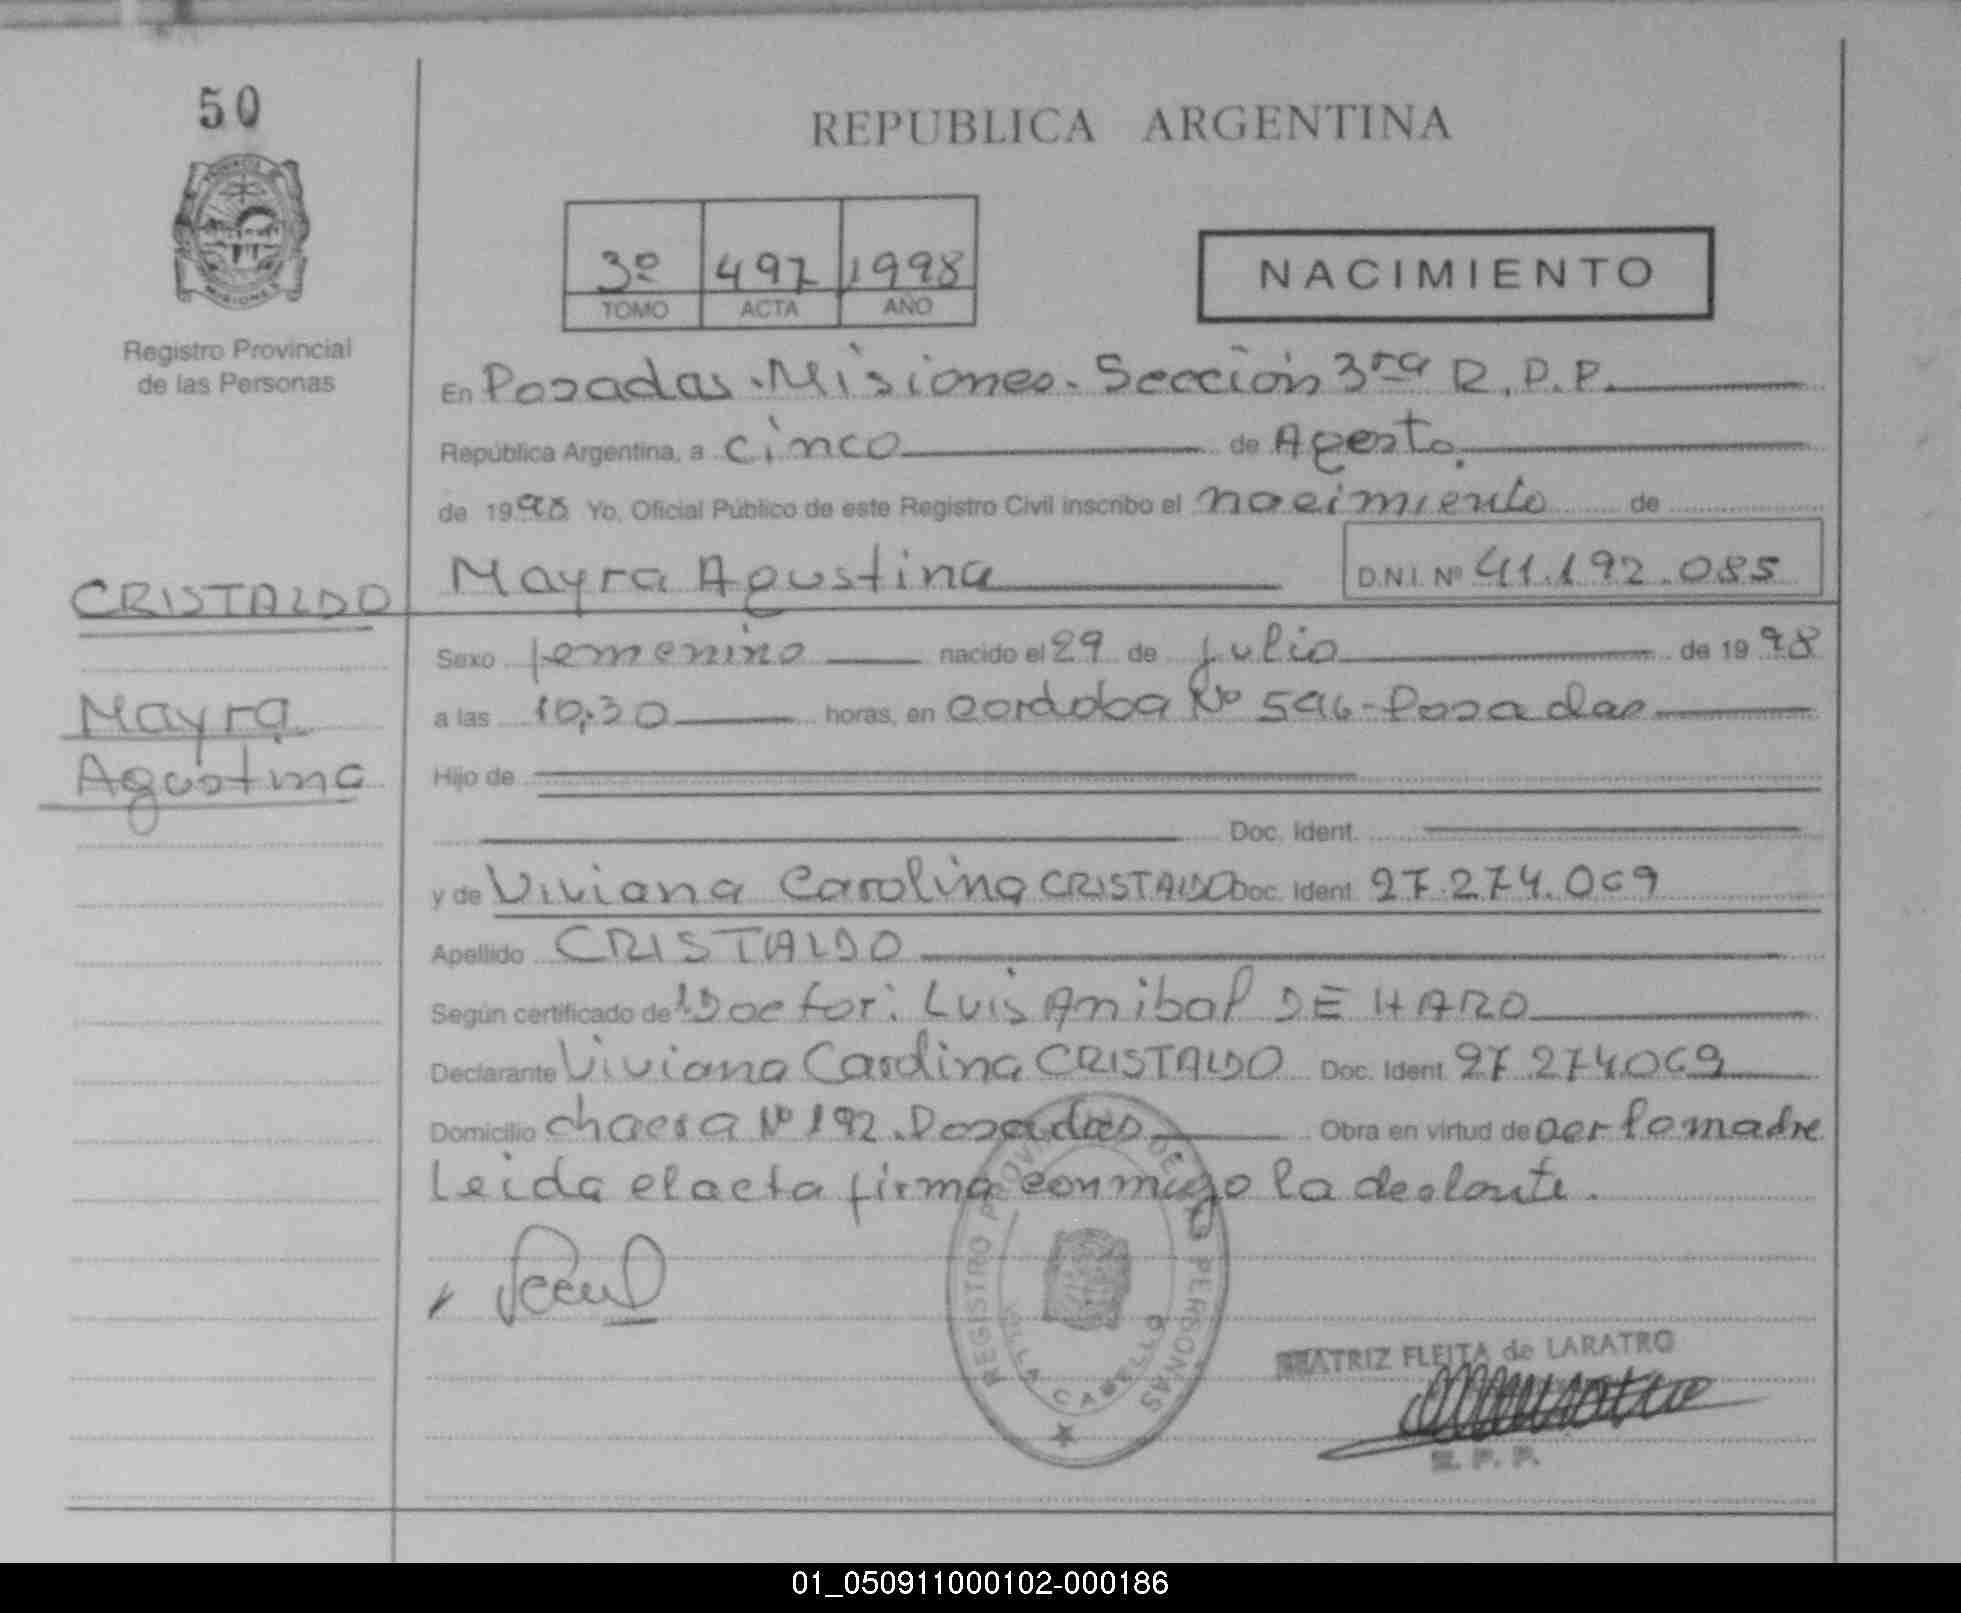 50
REPUBLICA ARGENTINA
3º 497 1998
TOMO ACTA AÑO
NACIMIENTO
MISIONES
Registro Provincial
de las Personas
En Posadas. Misiones. Sección 3ra R.P.P.
República Argentina, a cinco de Agosto.
de 1998 Yo, Oficial Público de este Registro Civil inscribo el nacimiento de
Mayra Agustina D.N.I. Nº 41.192.085
CRISTALDO
Mayra
Agustina
Sexo femenino nacido el 29 de julio de 1998
a las 10,30 horas, en cordoba Nº 596 - Posadas
Hijo de
Doc. Ident.
y de Viviana Carolina CRISTALDO Doc. Ident. 27.274.069
Apellido CRISTALDO
Según certificado de Doctor: Luis Anibal DE HARO
Declarante Viviana Carolina CRISTALDO Doc. Ident. 27.274069
Domicilio chacra Nº 192. Posadas Obra en virtud de ser la madre
Leida el acta firma conmigo la declante.
REGISTRO PROVINCIAL DE LAS PERSONAS
VILLA CABELLO
BEATRIZ FLEITA de LARATRO
01_050911000102-000186